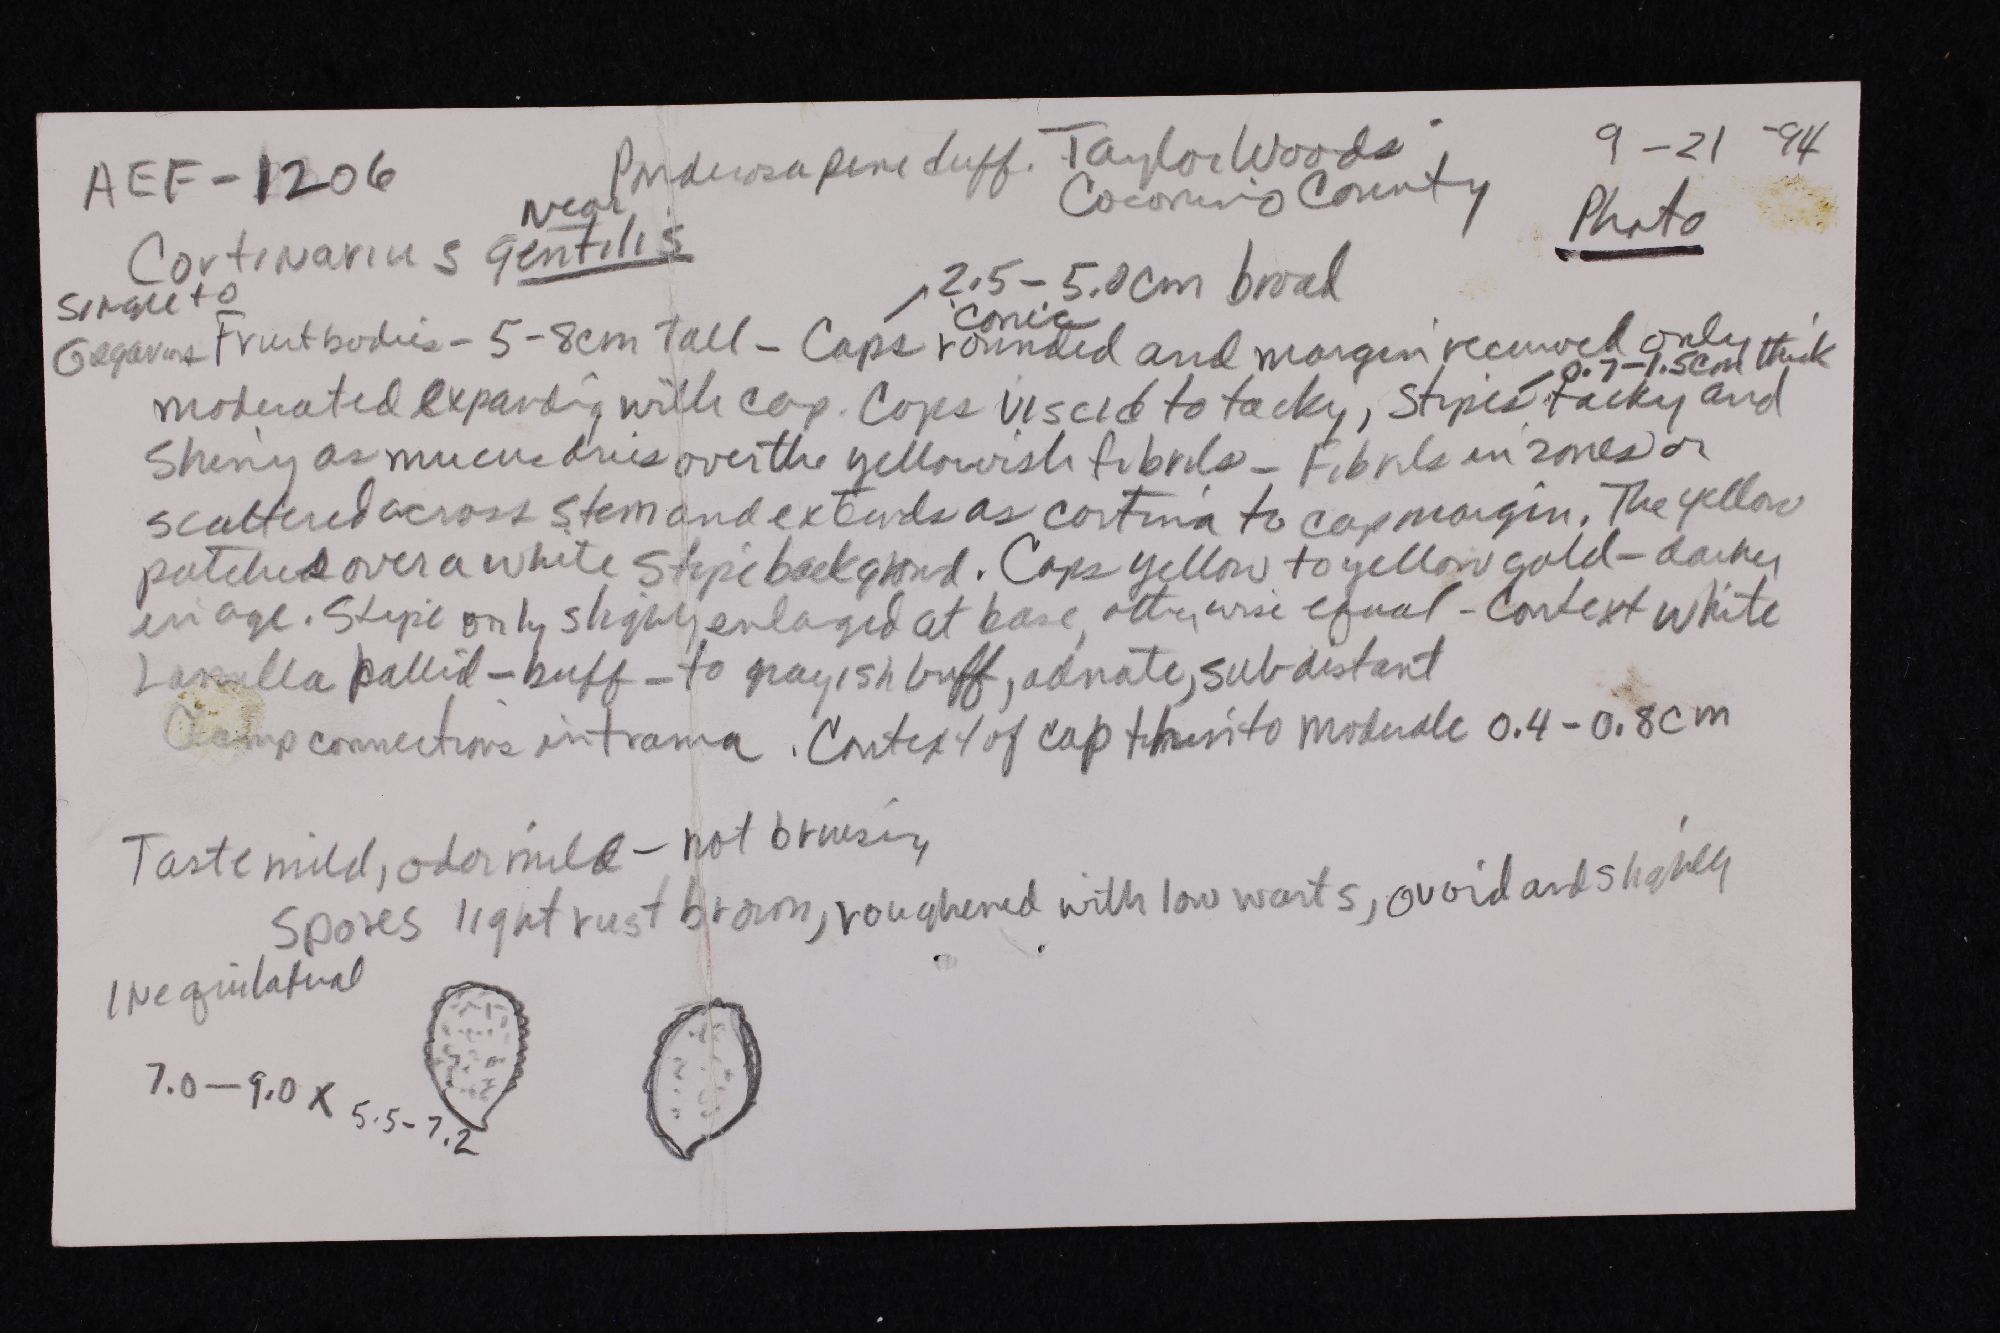 AEF-1206 Ponderosa pine duff. Taylor Woods 9-21-94
Coconino County
Photo
near
Cortinarius gentilis
2.5-5.0cm broad
Single to
conic
Gregarius Fruitbodies - 5-8cm Tall - Caps rounded and margin recurved only
0.7-1.5cm thick
moderated expanding with cap. Caps viscid to tacky, Stipes tacky and
Shiny as mucus dries over the yellowish fibrils - Fibrils in zones or
scattered across stem and extends as cortina to cap margin. The yellow
patches over a white Stipe background. Caps yellow to yellow gold - darker
in age. Stipe only slighly enlarged at base, otherwise equal - Context white
Lamella pallid - buff - to grayish buff, adnate, subdistant
Clamp connections in trama. Context of cap thin to moderate 0.4-0.8cm
Taste mild, odor mild - not bruising
Spores light rust brown, roughened with low warts, ovoid and slighly
Inequilateral
7.0-9.0 x 5.5-7.2